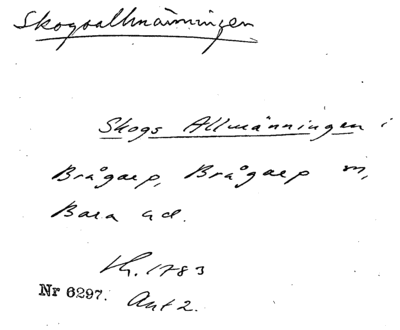 Skogsallmänningen
Skogs Allmänningen i
Brågarp, Brågarp m,
Bara hd.
Lh. 1783
Nr 6297. Akt 2.